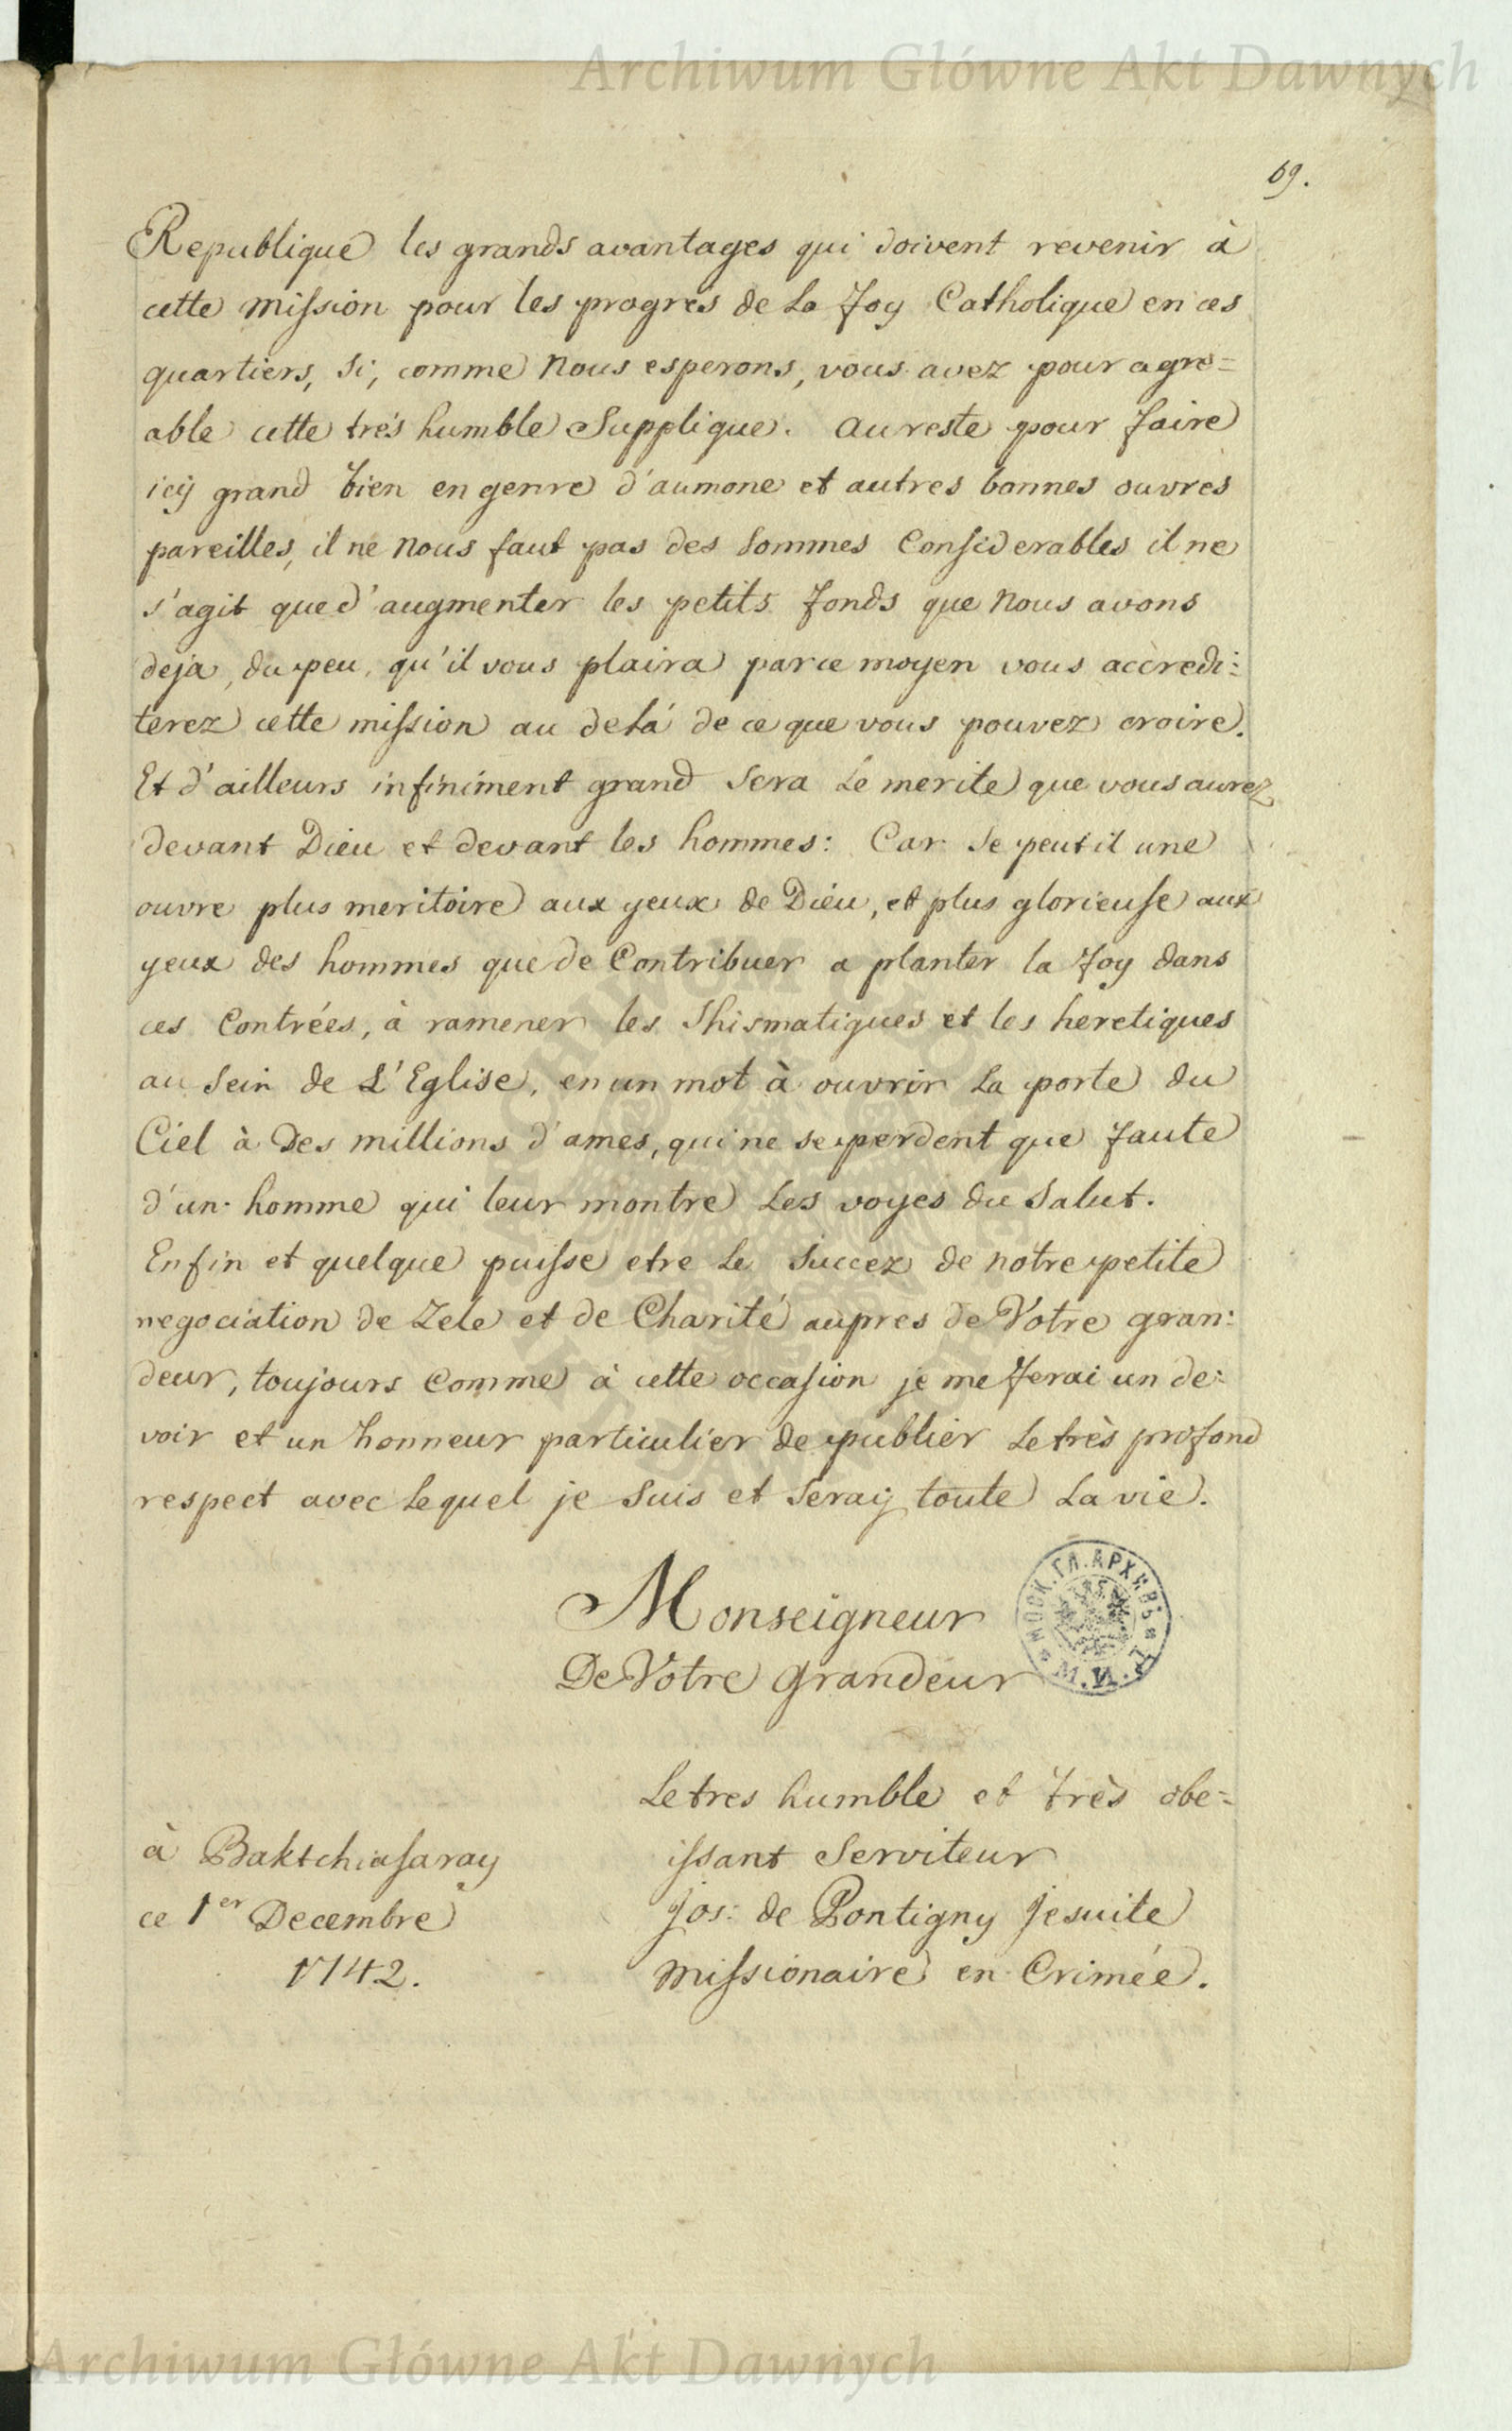 Archiwum Główne Akt Dawnych
69.
Republique les grands avantages qui doivent revenir à
cette mission pour les progrés de la foy Catholique en ces
quartiers, si, comme nous esperons, vous avez pour agre=
able cette trés humble Supplique. au reste pour faire
icÿ grand bien en genre d'aumone et autres bonnes ouvres
pareilles, il ne nous faut pas des sommes Considerables il ne
s'agit que d'augmenter les petits fonds que nous avons
deja, du peu, qu'il vous plaira par ce moyen vous accredi=
terez cette mission au delá de ce que vous pouvez croire.
Et d'ailleurs infiniment grand sera le merite que vous aurez
devant Dieu et devant les hommes: Car se peut il une
ouvre plus meritoire aux yeux de Dieu, et plus glorieuse aux
yeux des hommes que de Contribuer a planter la foy dans
ces Contrées, à ramener les Shismatiques et les heretiques
au sein de L'Eglise, en un mot à ouvrir la porte du
Ciel à Des millions d'ames, qui ne se perdent que faute
d'un homme qui leur montre les voyes du Salut.
Enfin et quelque puisse etre le succez de notre petite
negociation de Zele et de Charité aupres de Votre gran=
deur, toujours comme à cette occasion je me ferai un de=
voir et un honneur particulier de publier le très profond
respect avec lequel je suis et seraÿ toute la vie.
Monseigneur
De Votre grandeur
МОСК. ГЛ. АРХИВЪ М.И.Д.
Le tres humble et très obe=
à Baktchiasaray issant Serviteur
ce 1er Decembre jos: de Pontigny jesuite
1742. missionaire en Crimée.
Archiwum Główne Akt Dawnych